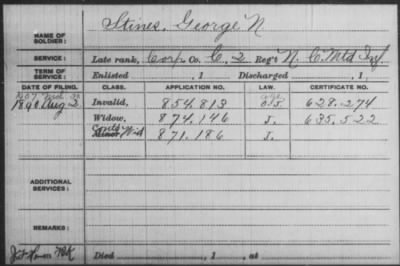 Stines, George N
NAME OF SOLDIER:
SERVICE: Late rank, Corp Co. C, 2 Reg't N. C. Mtd Inf.
TERM OF SERVICE: Enlisted , 1 Discharged , 1
DATE OF FILING. CLASS. APPLICATION NO. LAW. CERTIFICATE NO.
1890 Aug 2 Invalid, 854.813 628.274
Widow, 874.146 J. 635.522
Contg Wid
Minor, 871.186 J.
ADDITIONAL SERVICES:
REMARKS:
Died , 1 , at